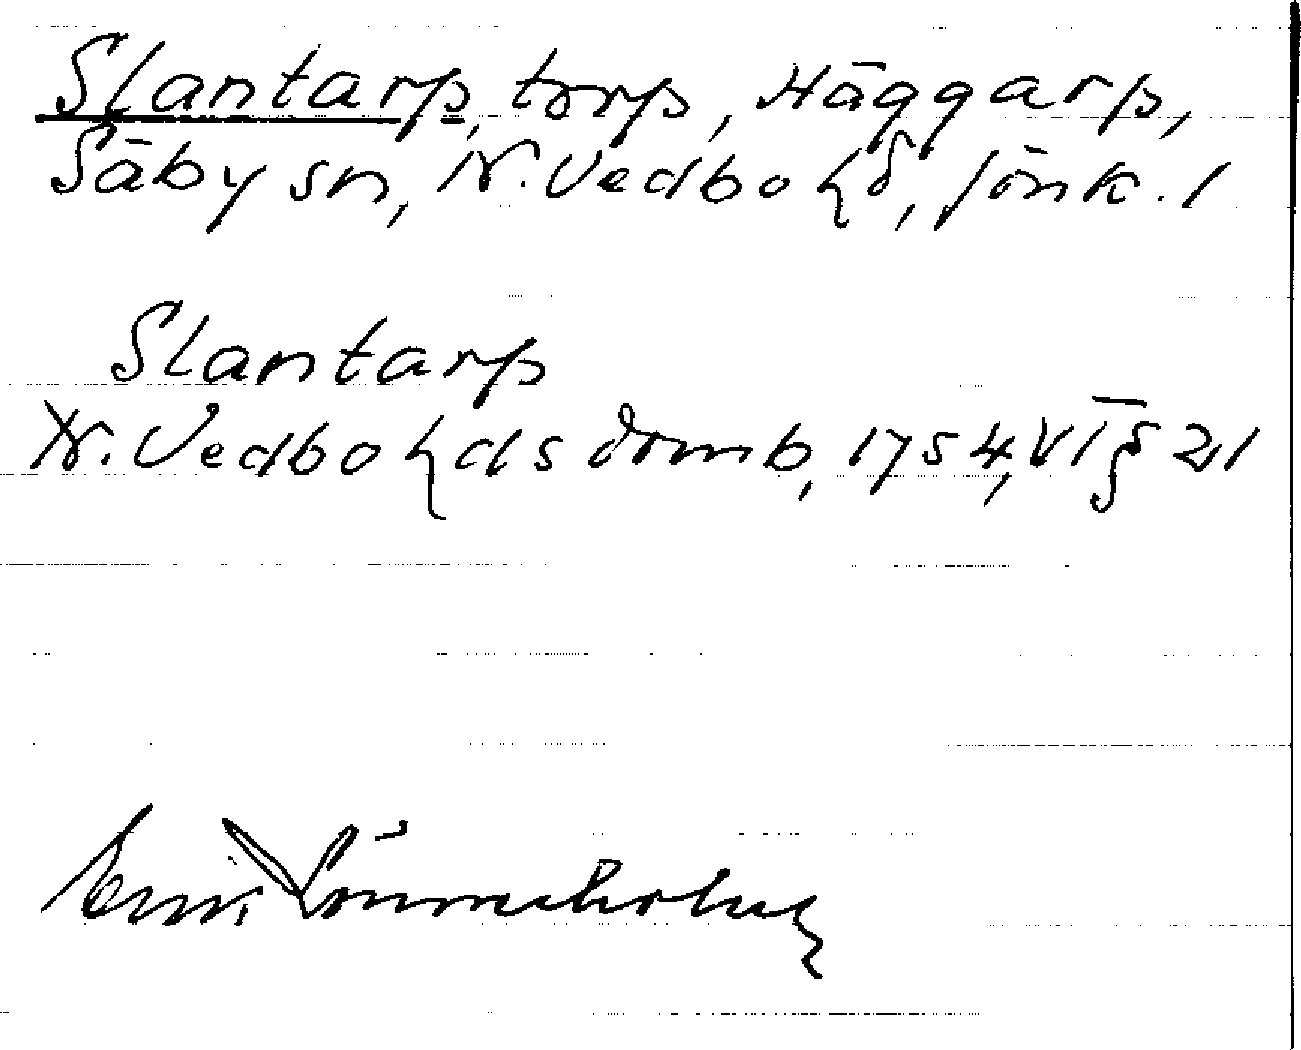 Slantarp, torp, Häggarp,
Säby sn, N. Vedbo hd, Jönk. l
Slantarp
N. Vedbo hds domb, 1754, VI § 21